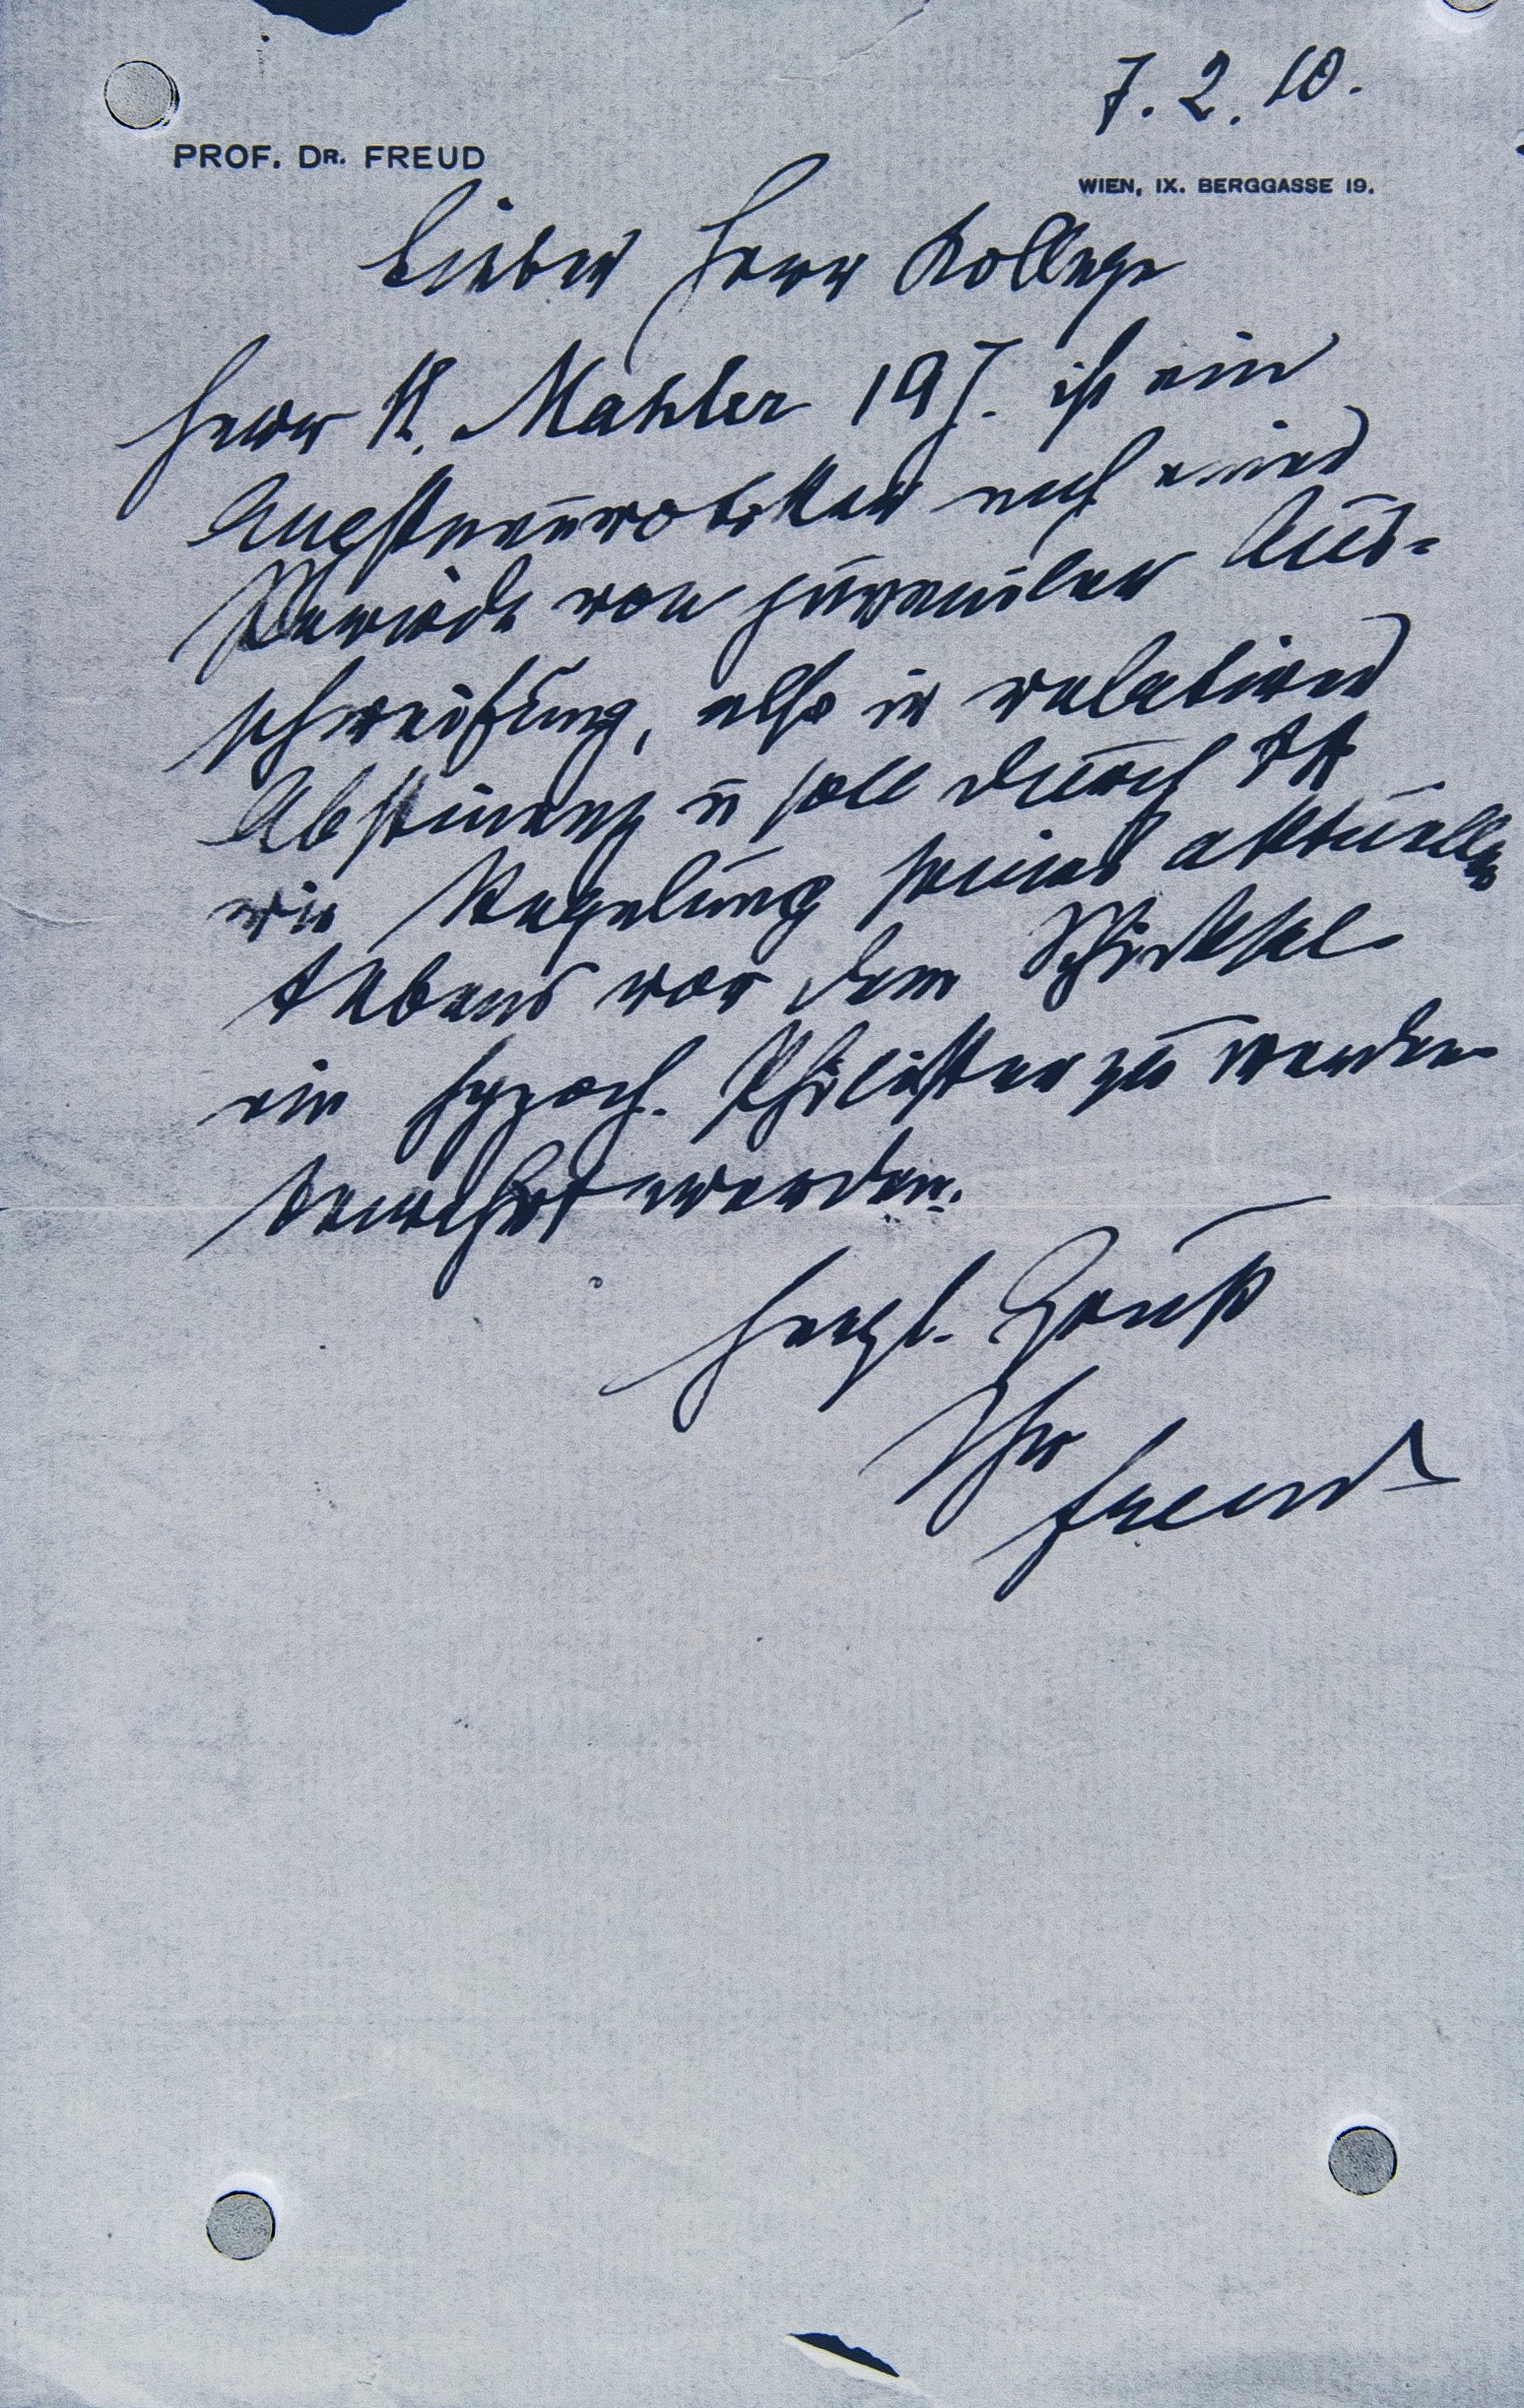 7. 2. 10.
PROF. DR. FREUD
WIEN, IX. BERGGASSE 19.
Lieber Herr Kollege
Herr K. Mahler 19 J. ist ein
Angstneurotiker nach einer
Periode von juveniler Aus-
schweifung, also in relativer
Abstinenz u soll durch
wie Regelung seines aktuellen
Lebens vor dem Schicksal
ein hypoch. Philister zu werden
bewahrt werden.
Herzl. Gruß
Ihr
Freud